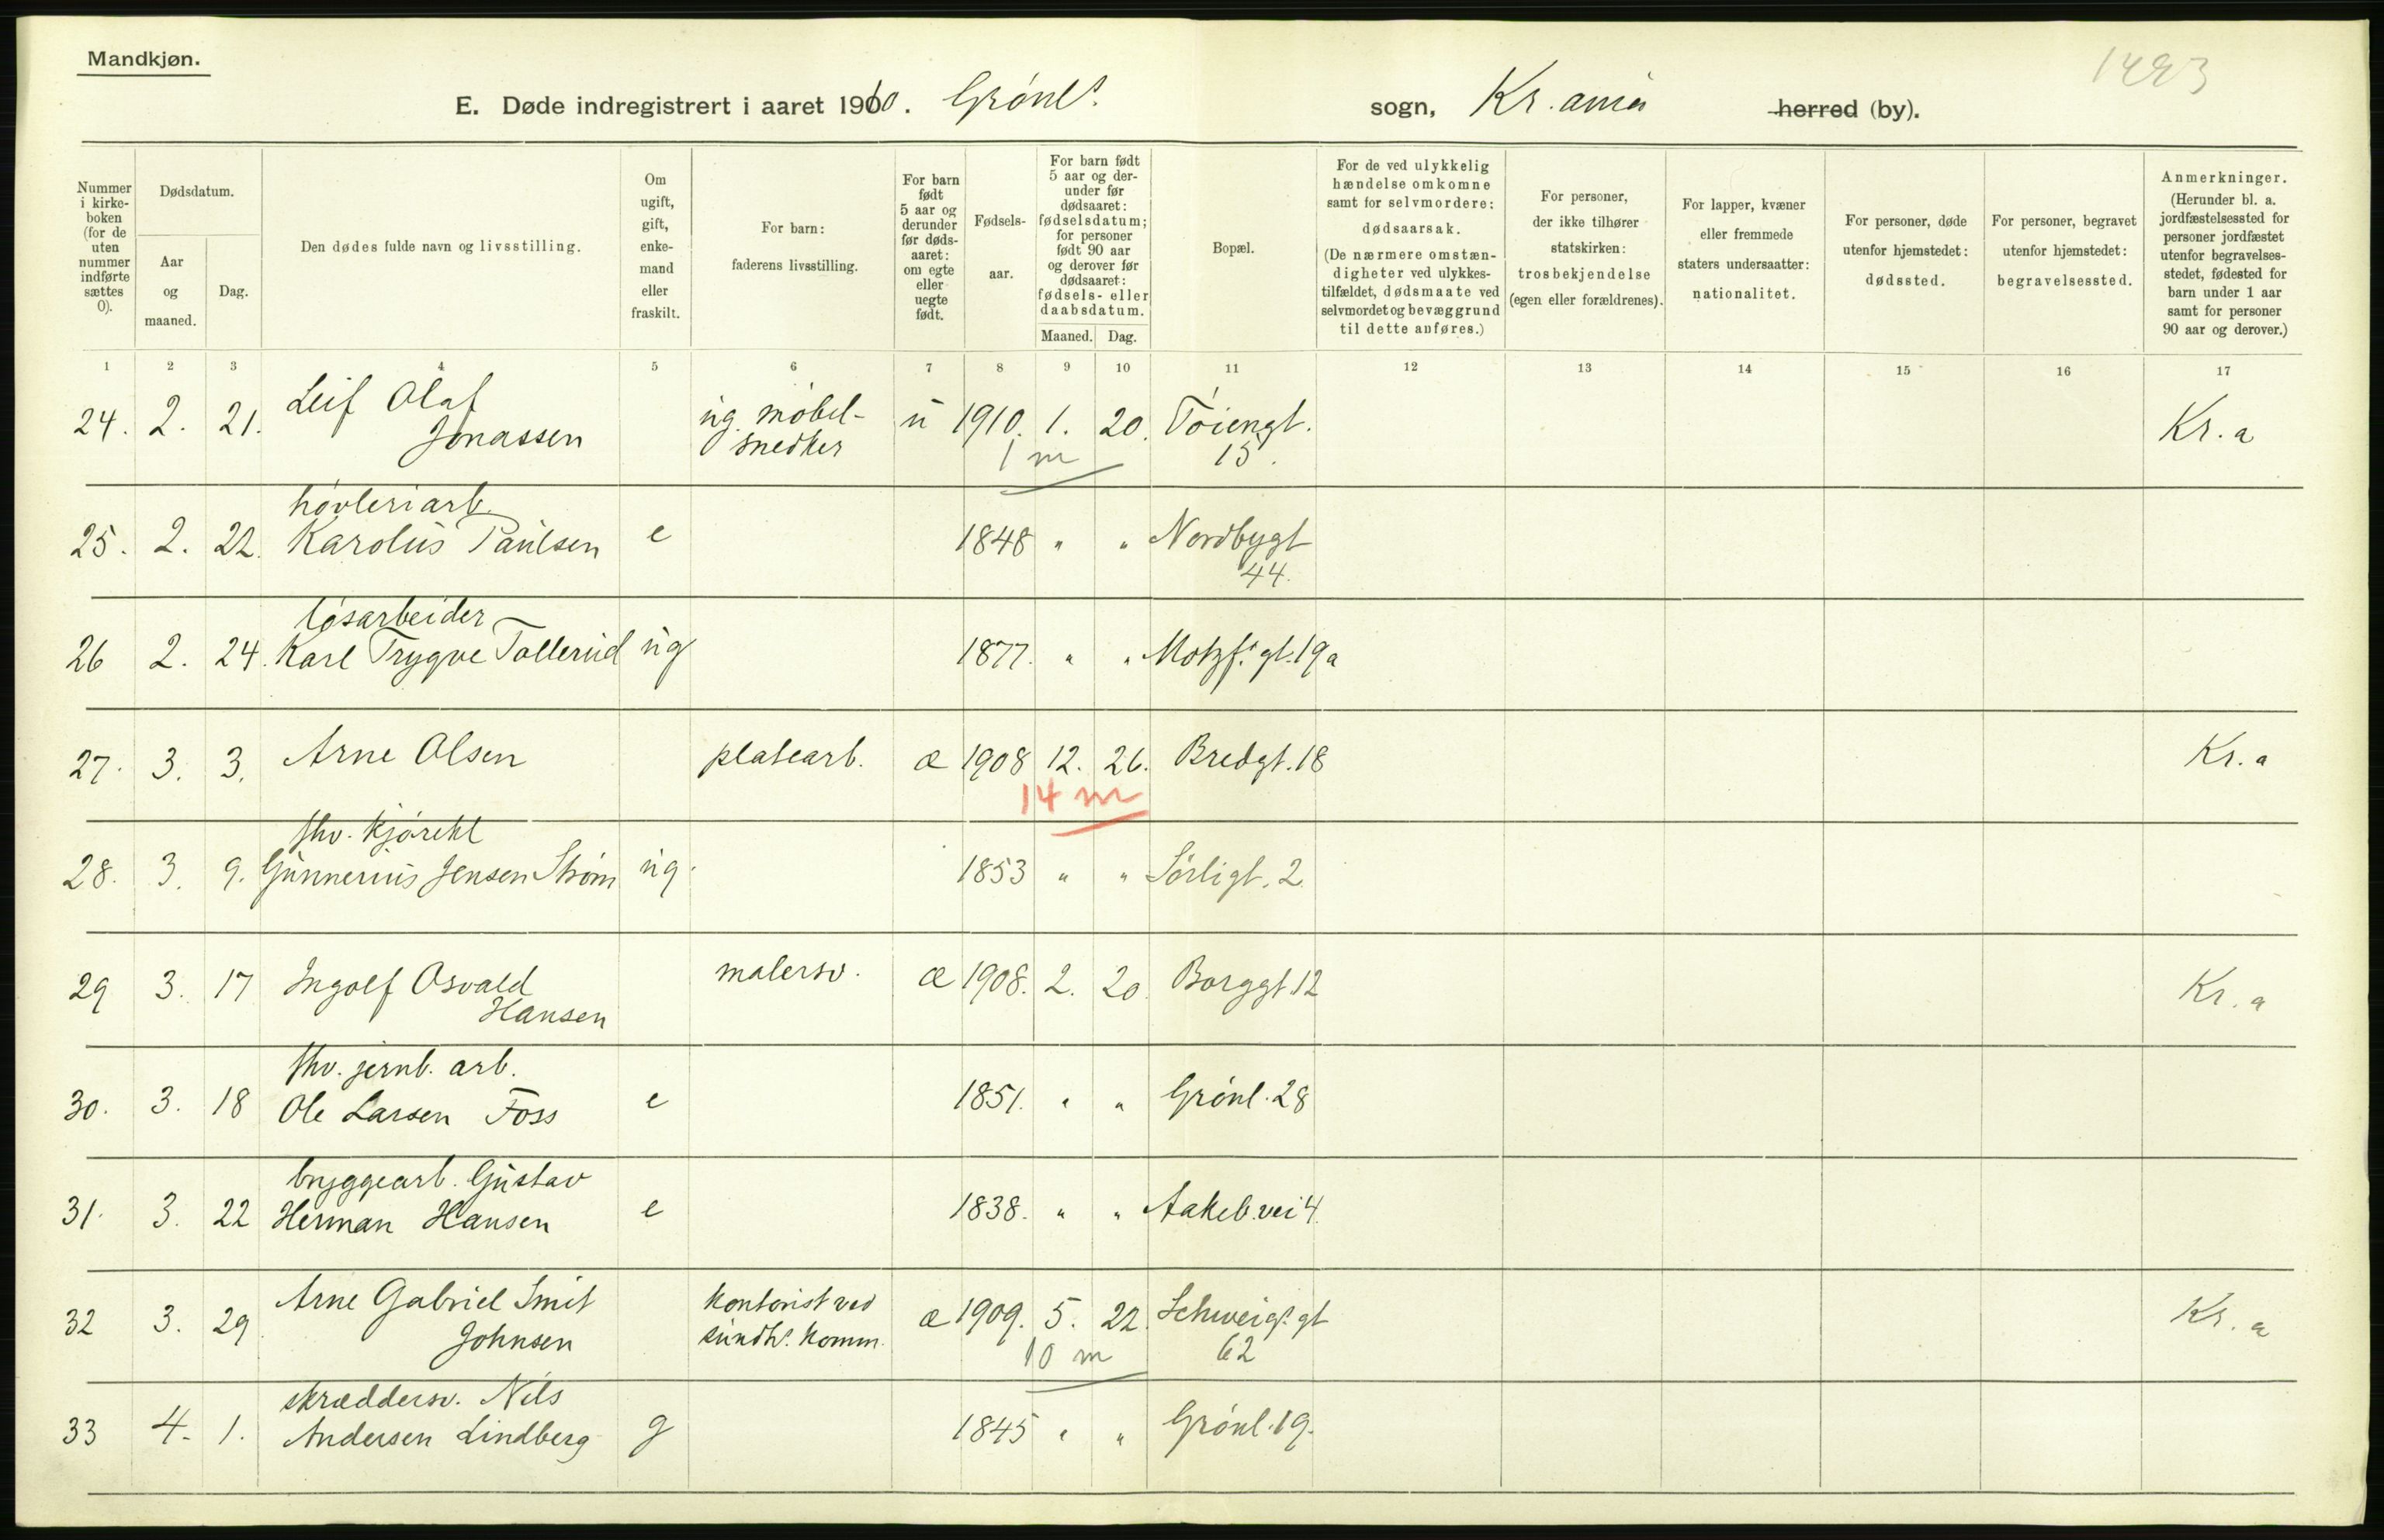 Mandkjøn.
1493
E. Døde indregistrert i aaret 1910. Grønls. sogn, Kr.ania herred (by).
Nummer i kirke- boken (for de uten nummer indførte sættes 0).
Dødsdatum.
Aar og maaned.
Dag.
Den dødes fulde navn og livsstilling.
Om ugift, gift, enke- mand eller fraskilt.
For barn: faderens livsstilling.
For barn født 5 aar og derunder før døds- aaret: om egte eller uegte født.
Fødsels- aar.
For barn født 5 aar og der- under før dødsaaret: fødselsdatum; for personer født 90 aar og derover før dødsaaret: fødsels- eller daabsdatum.
Maaned. Dag.
Bopæl.
For de ved ulykkelig hændelse omkomne samt for selvmordere: dødsaarsak. (De nærmere omstæn- digheter ved ulykkes- tilfældet, dødsmaate ved selvmordet og bevæggrund til dette anføres.)
For personer, der ikke tilhører statskirken: trosbekjendelse (egen eller forældrenes).
For lapper, kvæner eller fremmede staters undersaatter: nationalitet.
For personer, døde utenfor hjemstedet: dødssted.
For personer, begravet utenfor hjemstedet: begravelsessted.
Anmerkninger. (Herunder bl. a. jordfæstelsessted for personer jordfæstet utenfor begravelses- stedet, fødested for barn under 1 aar samt for personer 90 aar og derover.)
1 2 3 4 5 6 7 8 9 10 11 12 13 14 15 16 17
24. 2. 21. Leif Olaf Jonassen ug. møbel- snedker u 1910. 1. 20. Tøiengt. 15. Kr. a
1 m
høvleriarb.
25. 2. 22. Karolus Paulsen e 1848 " " Nordbygt 44.
løsarbeider
26 2. 24. Karl Trygve Tollerud ug 1877. " " Motzf.s gt. 19a
27. 3. 3. Arne Olsen platearb. æ 1908 12. 26. Bredgt. 18 Kr. a
14 m
fhv. kjørekl
28. 3. 9. Gunnerius Jensen Strøm ug. 1853 " " Sørligt. 2
29 3. 17 Ingolf Osvald Hansen malersv. æ 1908. 2. 20. Borggt 12 Kr. a
fhv. jernb. arb.
30. 3. 18 Ole Larsen Foss e 1851. " " Grønl. 28
bryggearb. Gustav
31. 3. 22 Herman Hansen e 1838. " " Aakeb.vei 4.
32 3. 29 Arne Gabriel Smit Johnsen kontorist ved sundhs. komm. æ 1909. 5. 22. Schweigs. gt 62 Kr. a
10 m
skræddersv. Nils
33 4. 1. Andersen Lindberg g 1845 " " Grønl. 19.